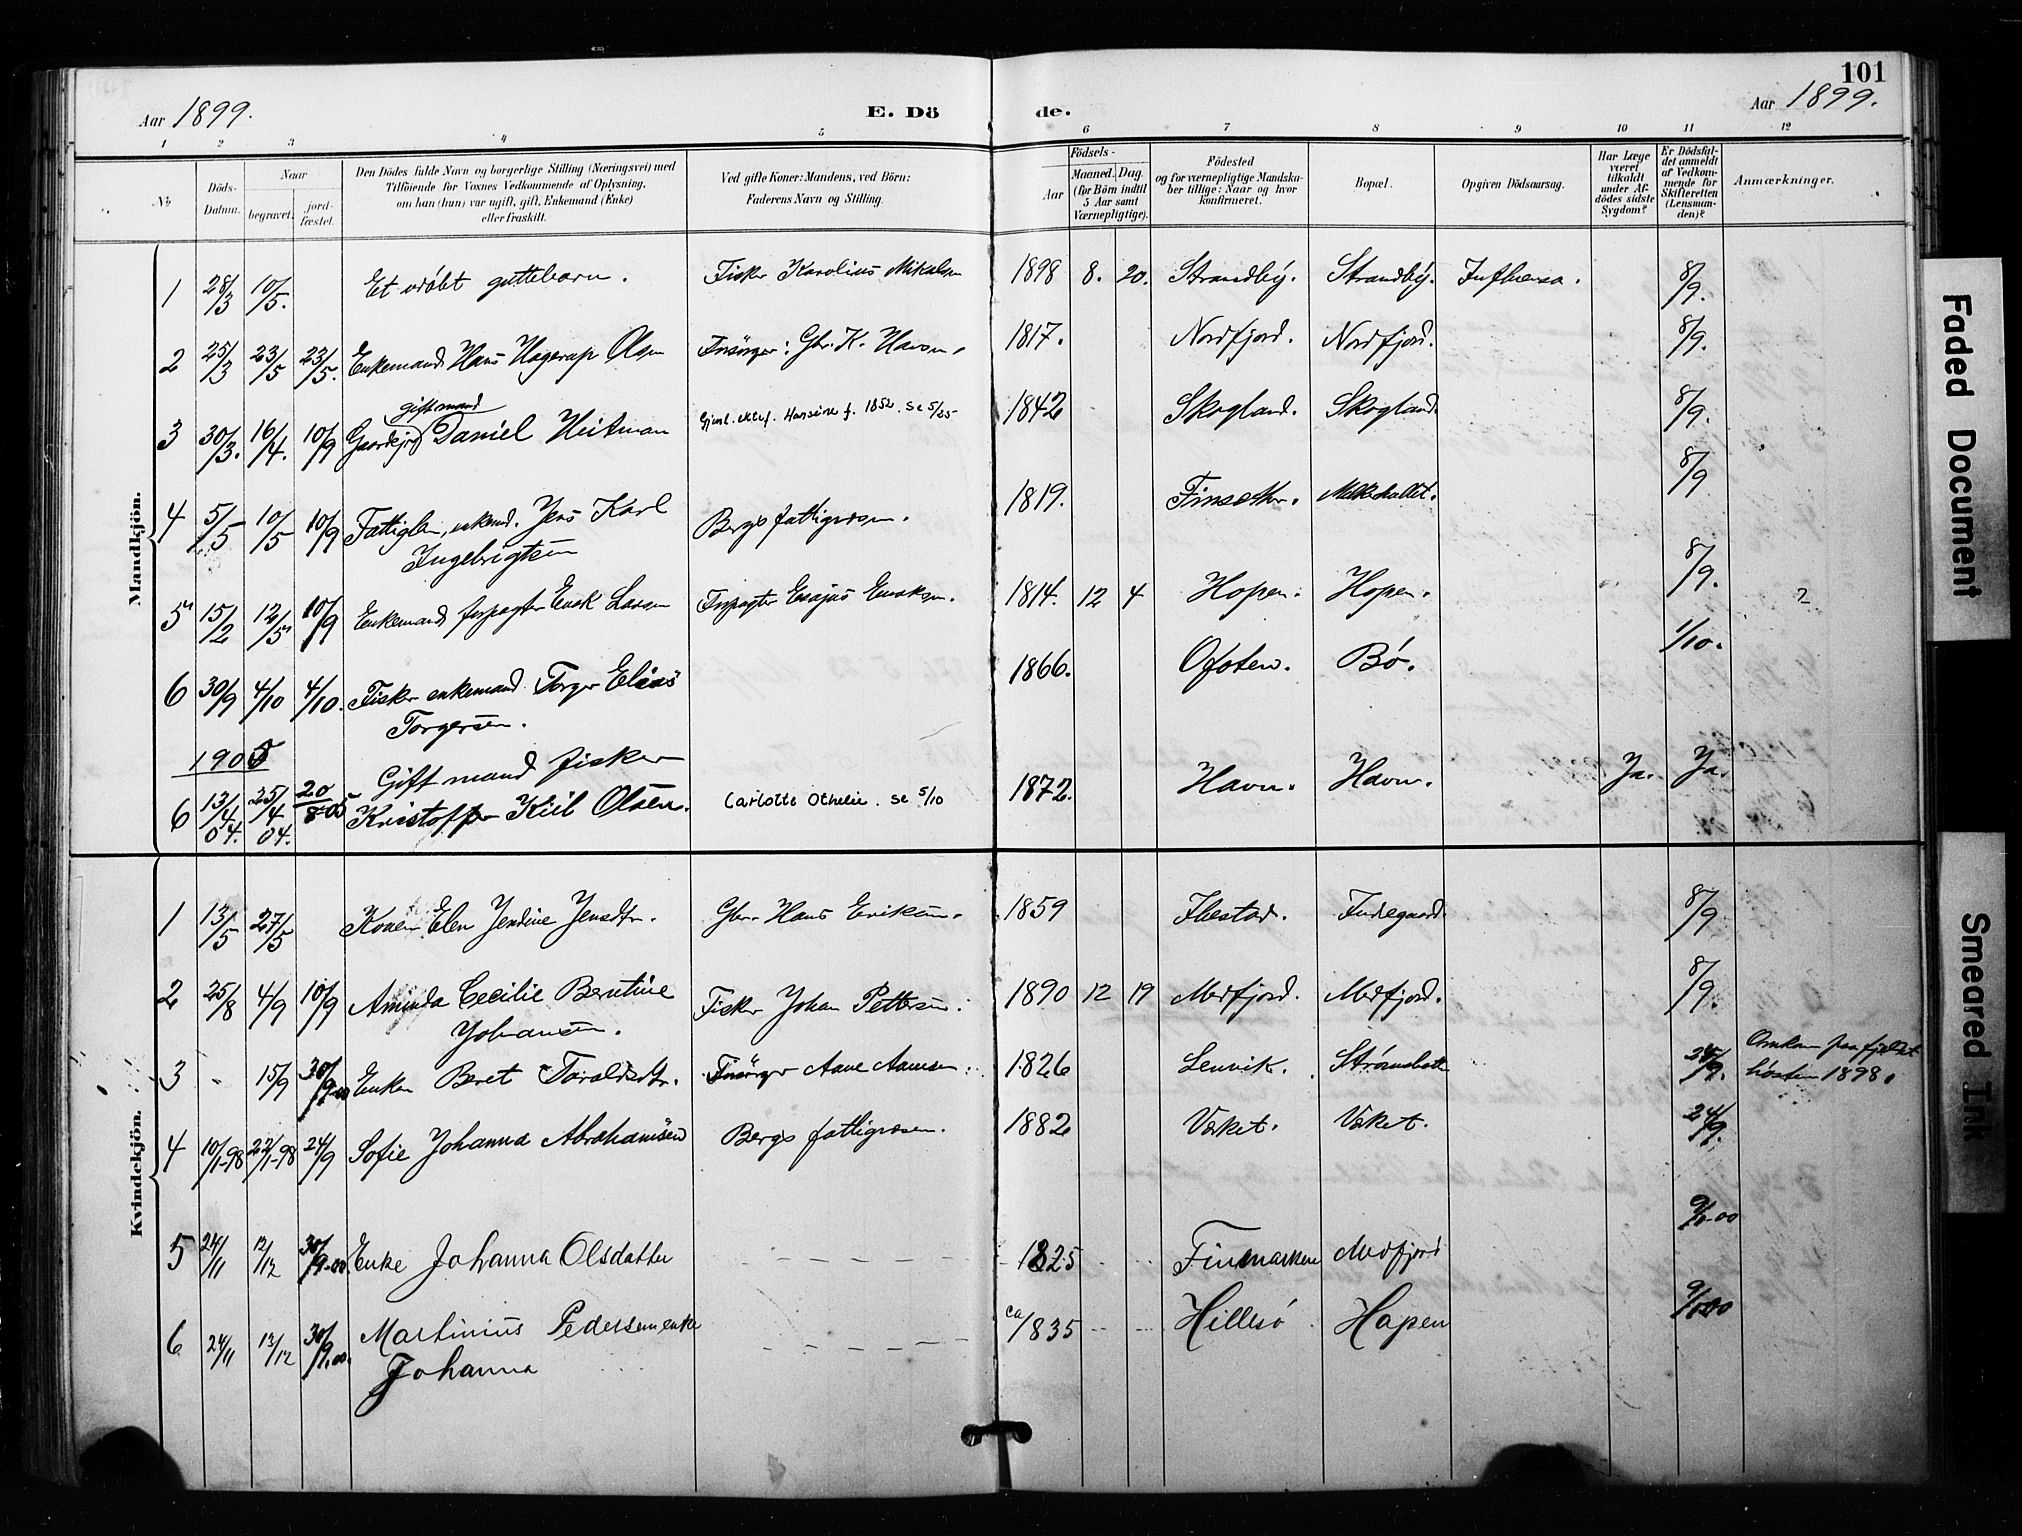 101
Aar 1899.
E. Döde.
Aar 1899.
1 2 3 4 5 6 7 8 9 10 11 12
No
Döds-Datum.
Naar begravet.
jord-fæstet.
Den Dödes fulde Navn og borgerlige Stilling (Næringsvei) med
Tilföiende for Voxnes Vedkommende af Oplysning,
om han (hun) var ugift, gift, Enkemand (Enke)
eller fraskilt.
Ved gifte Koner: Mandens, ved Börn:
Faderens Navn og Stilling.
Födsels-
Aar
Maaned. Dag.
(for Börn indtil
5 Aar samt
Værnepligtige).
Födested
og for værnepligtige Mandska-
ber tillige: Naar og hvor
konfirmeret.
Bopæl.
Opgiven Dödsaarsag.
Har Læge
været
tilkaldt
under Af-
dödes sidste
Sygdom?
Er Dödsfal-
det anmeldt
af Vedkom-
mende for
Skifteretten
(Lensman-
den)?
Anmærkninger.
Mandkjön.
1 28/3 10/5. Et udöbt guttebarn. Fisker Karolius Mikalsen 1898 8. 20. Strandby. Strandby. Influensa. 8/9.
2 25/3 23/5 23/5. Enkemand Hans Hagerup Olsen Insörger: Gbr. K. Hansen. 1817. Nordfjord. Nordfjord. 8/9.
gift mand
3 30/3. 16/4. 10/9 Daniel Heitman Hansine f. 1852. se 5/25 1842 Skogland. Skogland. 8/9.
4 5/5 10/5 10/9 Fattiglem, enkemd. Jens Karl Bergs fattigvæsen. 1819. Finsæther. 8/9
Ingebrigtsen
5 15/2 12/5 10/9 Enkemand forpagter Enok Larsen Forpagter Esajas Enoksen. 1814. 12 4 Hopen. Hopen. 8/9. 2
6 30/9 4/10 4/10. Fisker enkemand Torger Elias 1866. Ofoten. Bö. 1/10.
Torgersen.
1905
Gift mand fisker
6 13/4 04. 25/4 04. 20/8-05 Kristoffer Kiil Olsen. Carlotte Othelie. se 5/10 1872. Havn. Havn. Ja. Ja.
Kvindekjön.
1 13/5 27/5 Konen Elen Jendine Jensdtr. Gbr. Hans Eriksen. 1859 Ibestad. Indregaard. 8/9.
2 25/8 4/9 10/9 Aminda Cecilie Berntine Fisker Johan Pettersen. 1890 12 19 Medfjord. Medfjord. 8/9.
Johansen.
3 - 15/9 30/9-00 Enken Beret Taraldsdtr. Insörger Aane Aanesen. 1826 Lenvik. Strömsbotn 24/9. Omkom paa fjeldet
hösten 1898.
4 10/1-98 22/1-98 24/9 Sofie Johanna Abrahamsen Bergs fattigvæsen. 1882 Vaket. Vaket. 24/9.
5 24/11 12/12 30/9-00. Enke Johanna Olsdatter 1825 Finmarken Medfjord 9/10-00
6 24/11 13/12 30/9.00. Martinius Pedersens enke ca 1835 Hillesö Hapen 9/10 00
Johanna
Faded Document
Smeared Ink